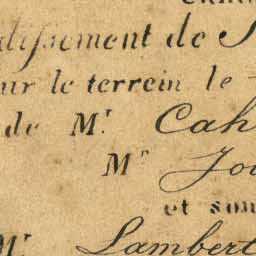 dissement de
sur le terrein le
de Mr. Cah
Mr Jou
et son
Mr. Lambert